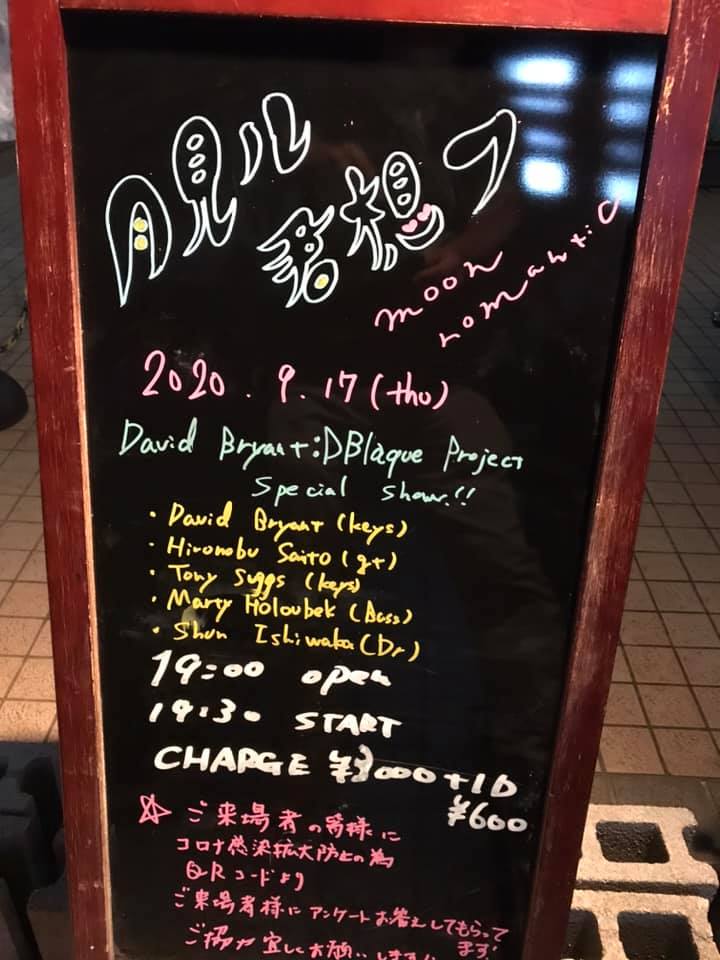 月見ル
君想フ
moon
romantic
2020.9.17(thu)
David Bryant:DBlaque Project
Special Show!!
・David Bryant (keys)
・Hironobu Saito (gt)
・Tony Suggs (keys)
・Marty Holoubek (Bass)
・Shun Ishiwaka (Dr)
19:00 open
19:30 START
CHARGE ¥3000+1D
¥600
☆ご来場者の皆様に
コロナ感染拡大防止の為
QRコードより
ご来場者様にアンケートお答えしてもらって
ます!
ご協力宜しくお願いします!!